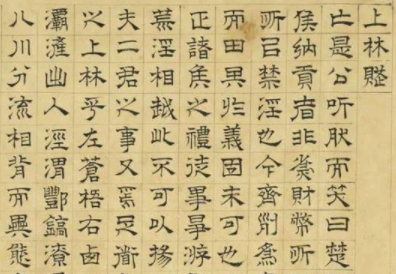 上林賦
亡是公听肰而笑曰楚
侯納貢者非為財幣所
所㠯禁淫也今齊列為
而田其於義固未可也
正諸侯之禮徒事爭游
荒淫相越此不可以揚
夫二君之事又焉足道
之上林乎左蒼梧右西
灞滻出入涇渭酆鎬潦
八川分流相背而異態